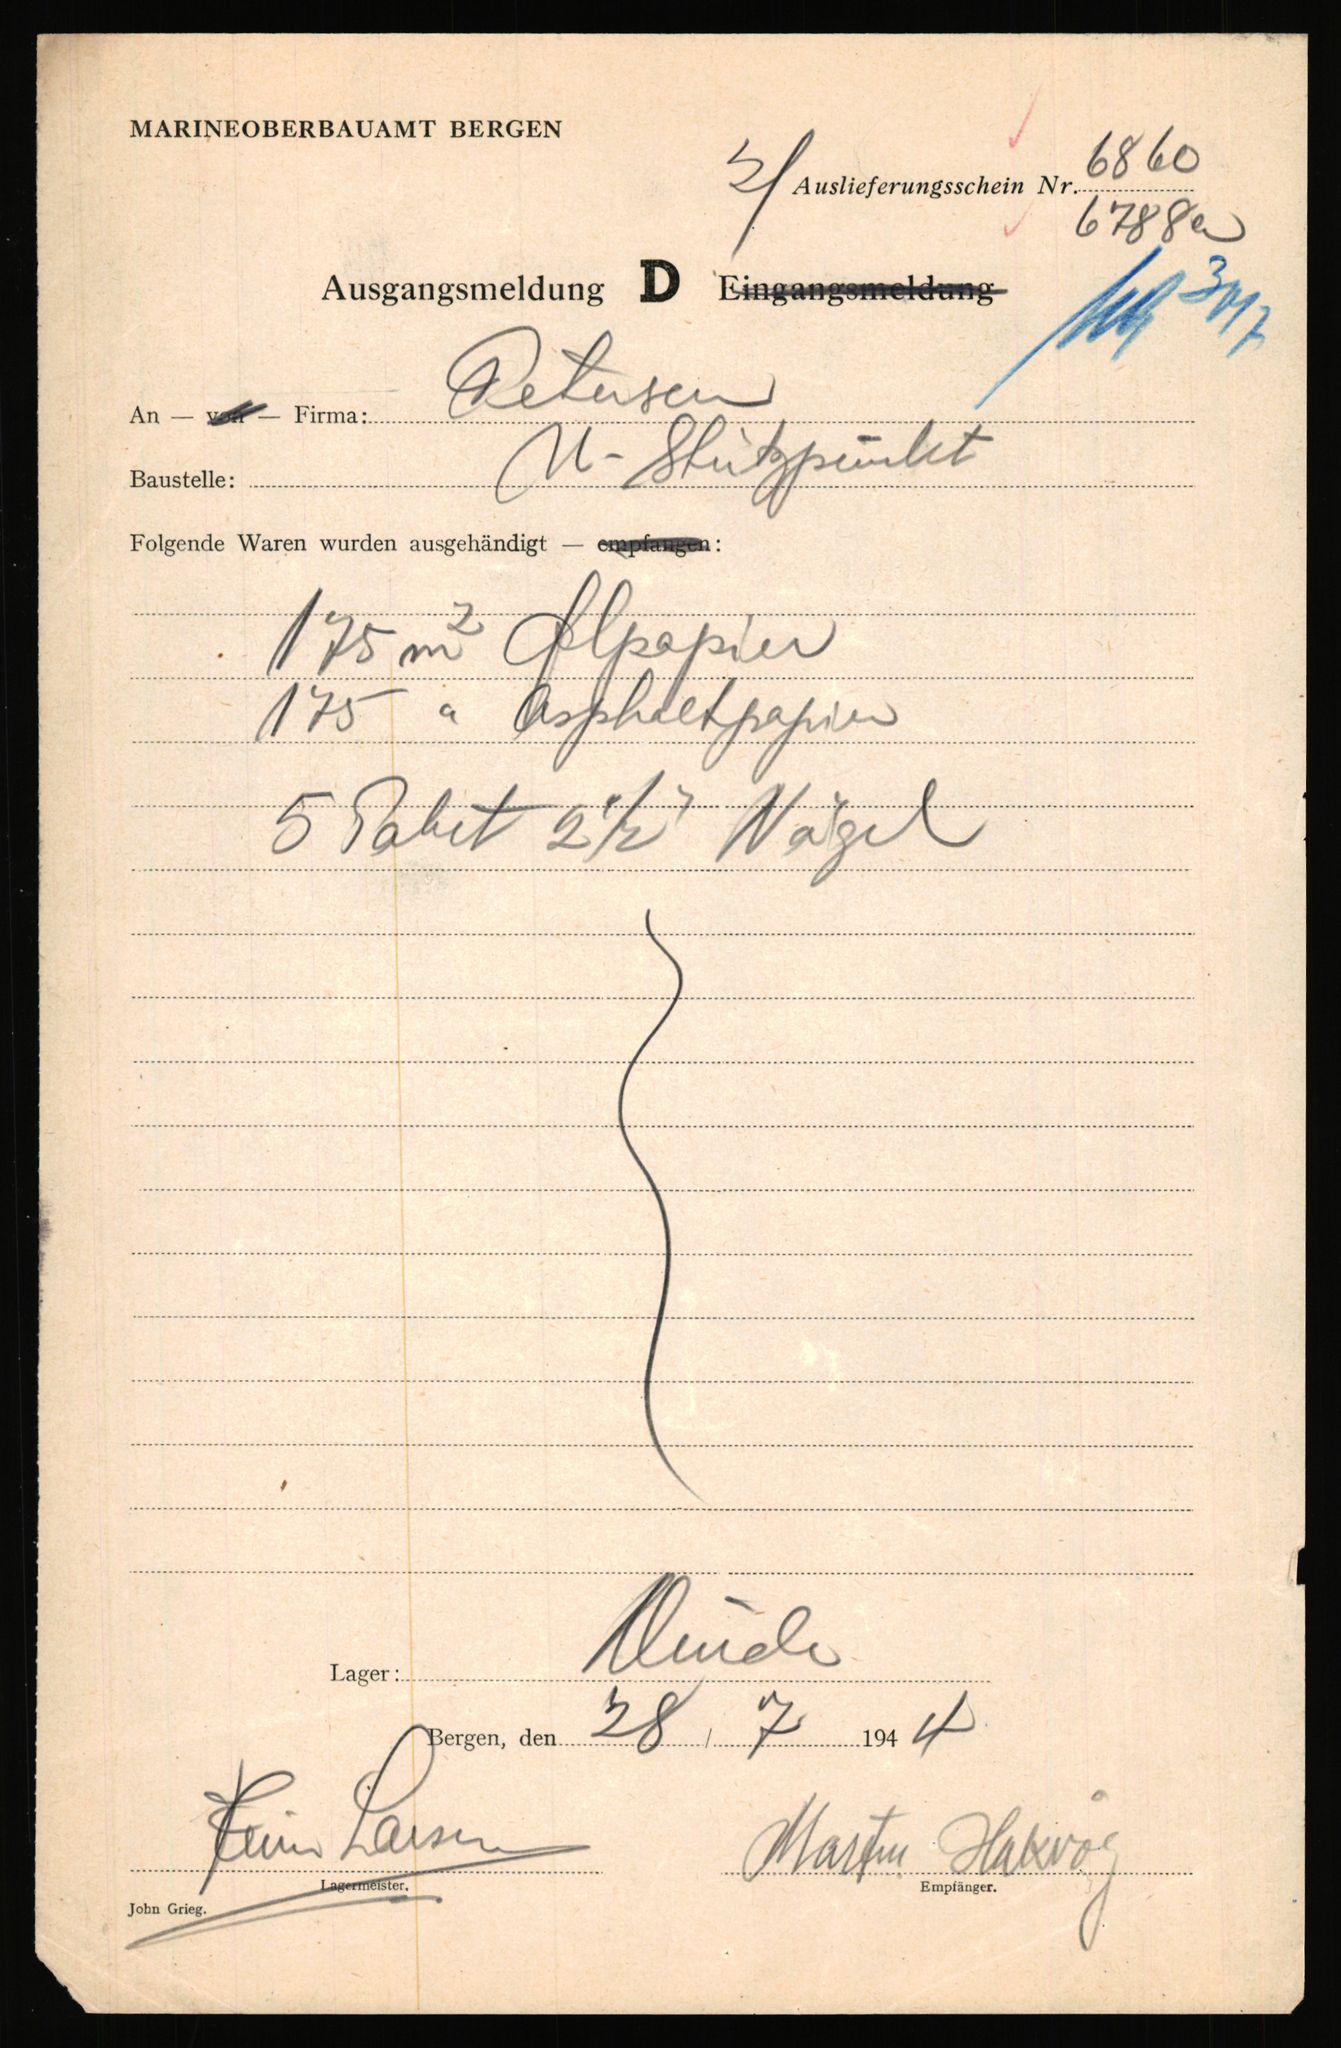 MARINEOBERBAUAMT BERGEN
Auslieferungsschein Nr. 6860
6788a
Ausgangsmeldung D Eingangsmeldung
An — von — Firma: Petersen
Baustelle: U-Stützpunkt
Folgende Waren wurden ausgehändigt — empfangen:
175 m² Ölpapier
175 " Asphaltpapier
5 Paket 2 1/2" Nägel
Lager:
Bergen, den 28 / 7 1944
Larsen
Martin
Lagermeister.
Empfänger.
John Grieg.